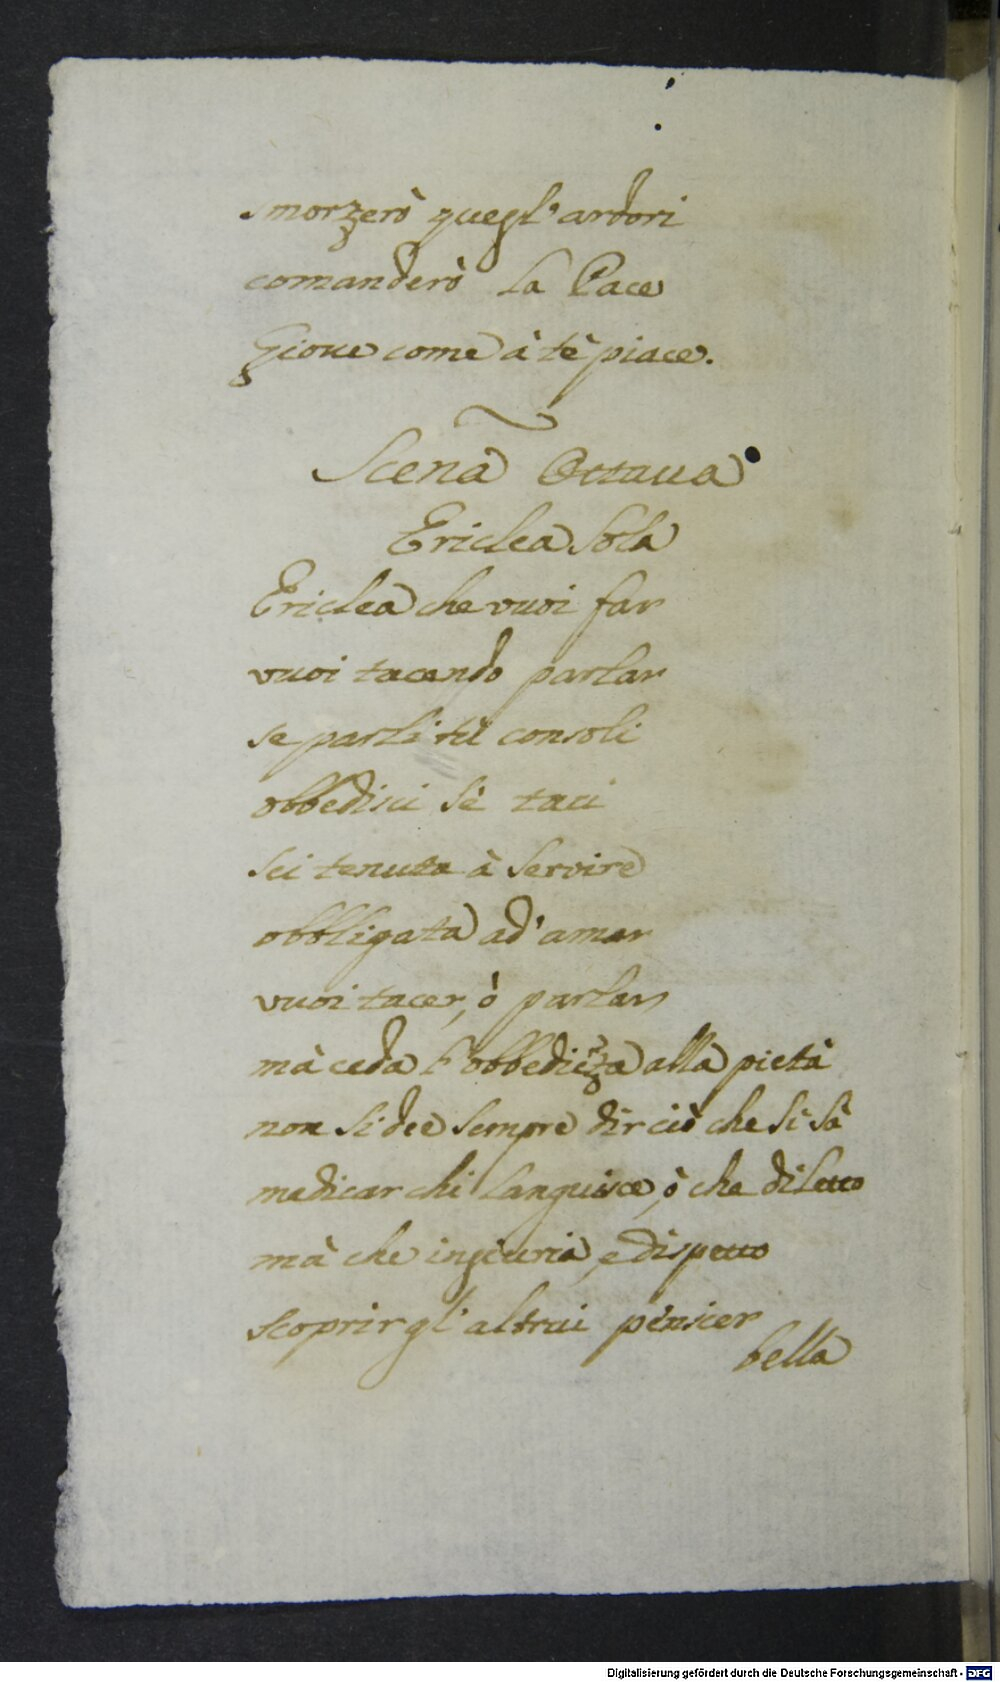 smorzerò quegl'ardori
comanderò la Pace
Gioue come à tè piace.
Scena Ottaua
Ericlea Sola
Ericlea che vuoi far
vuoi tacendo parlar
se parli tù consoli
obbedisci sè taci
sei tenuta à servire
obbligata ad'amar
vuoi tacer, ò parlar
mà ceda l'obbediẽza alla pietà
non si dee sempre dir ciò che si sà
medicar chi languisce, ò che diletto
mà che ingiuria, e dispetto
scoprir gl'altrui pensier
bella
Digitalisierung gefördert durch die Deutsche Forschungsgemeinschaft - DFG